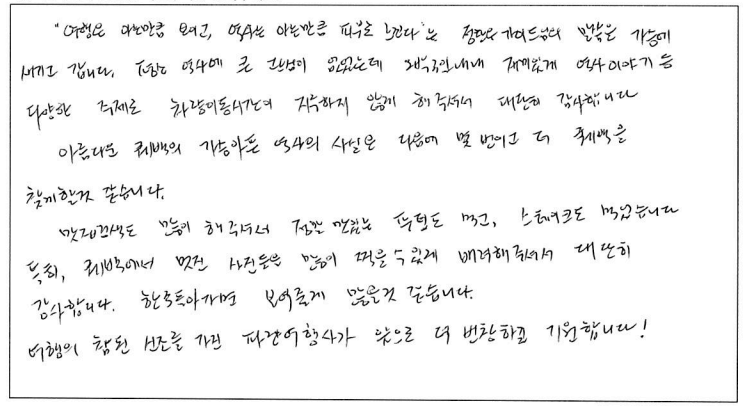 "여행은 아는만큼 보이고, 역사는 아는만큼 피부로 느낀다"는 가이드님의 말씀은 가슴에
새기고 갑니다. 평소 역사에 큰 관심이 없었는데 재미있게 역사이야기 등
다양한 주제로 차량이동시간이 지루하지 않게 해주셔서 대단히 감사합니다
아름다운 퀘벡의 가슴아픈 역사의 사실은 다음에 몇 번이고 더 퀘벡을
찾게할것 같습니다.
맛집검색도 많이 해주셔서 정말 맛있는 푸틴도 먹고, 스테이크도 먹었습니다
특히, 퀘벡에서 멋진 사진들을 많이 찍을수 있게 배려해주셔서 대단히
감사합니다. 한국돌아가면 보여줄게 많을것 같습니다.
여행의 참된 선조를 가진 파란여행사가 앞으로 더 번창하길 기원합니다!